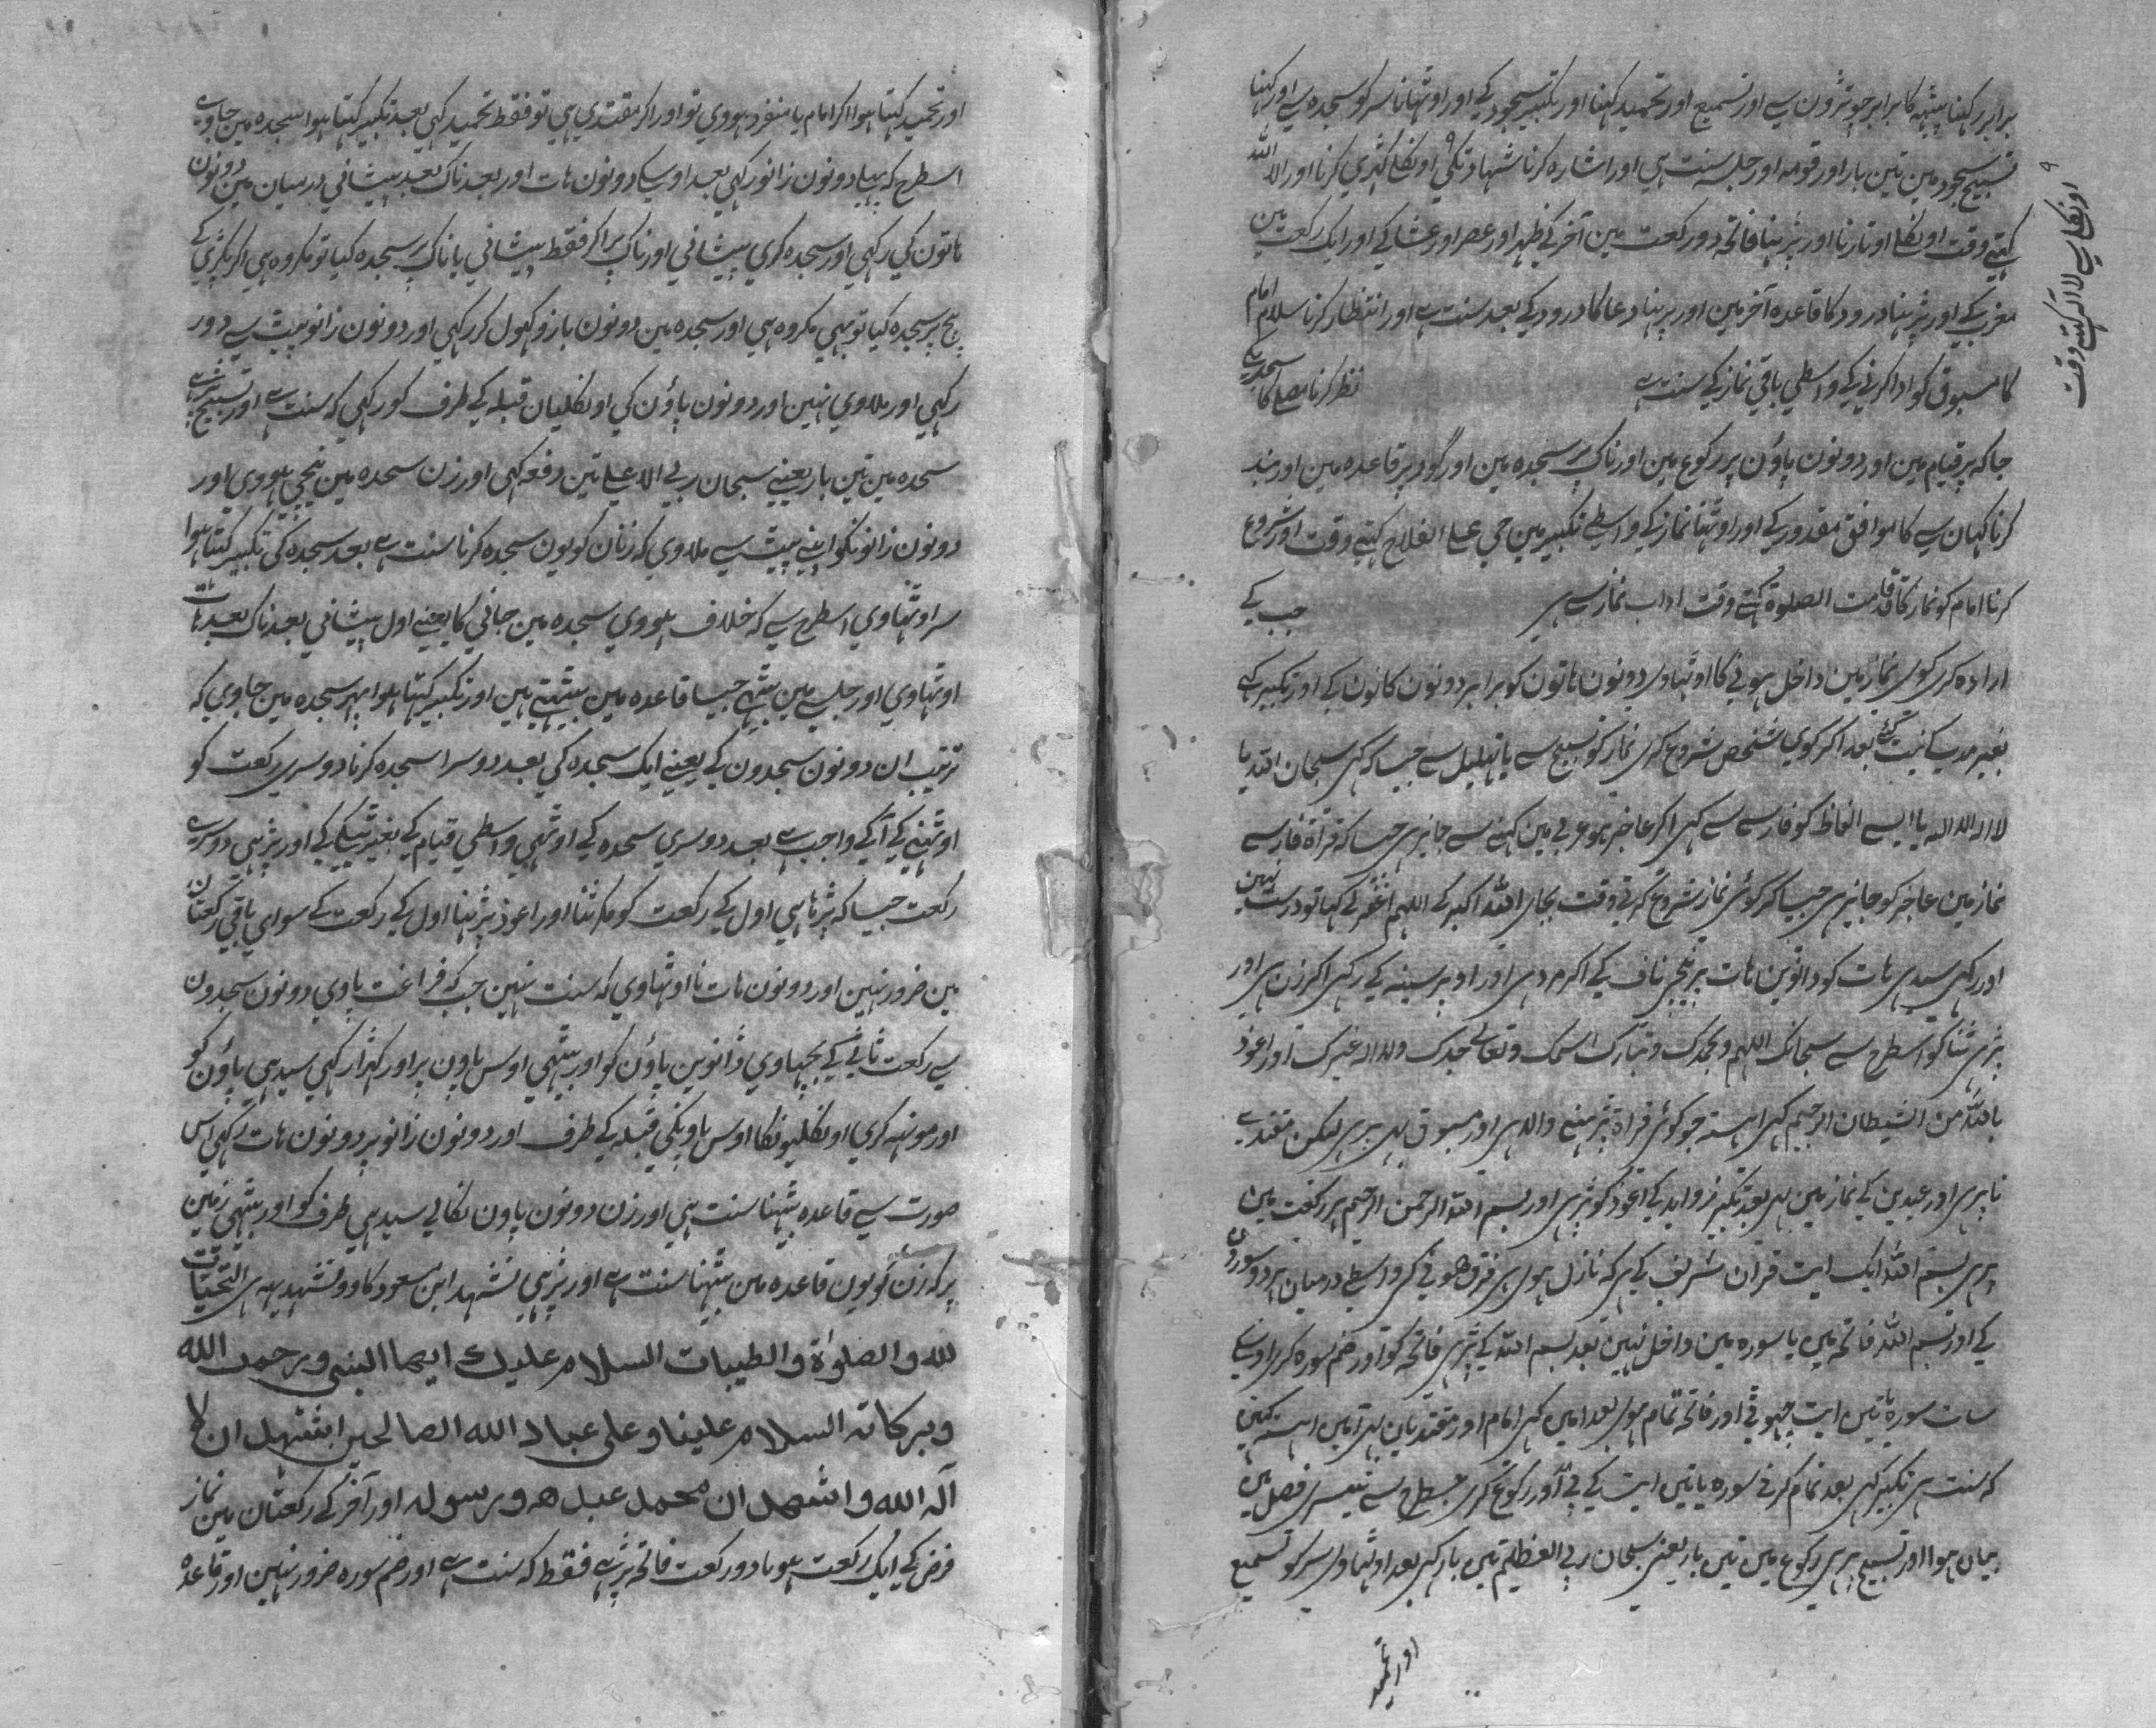 برابر رکہنا پیٹہہ کا برابر چوتڑون سے اور تسمیع اور تحمید کہنا اور تکبیر سجود کے اور اوٹہانا سر کو سجدہ سے اور کہنا
تسبیح سجود مین تین بار اور قومہ اور جلسہ سنت ہی اور اشارہ کرنا شہادتکی اونگلی کہڑی کرنا اور الا اللہ
کہتے وقت اونگلی اوتارنا اور پڑہنا فاتحہ دو رکعت مین آخر کے ظہر اور عصر اور عشا کے اور ایک رکعت مین
مغرب کے اور پڑہنا درود کا قاعدہ آخر مین اور پڑہنا دعا کا درود کے بعد سنت ہے اور انتظار کرنا سلام امام
کا مسبوق کو ادا کرنے کے واسطی باقی نماز کے سنت ہے نظر کرنا مصلی کا سجدے
جاکہ پر قیام مین اور دونون پاؤن پر رکوع مین اور ناک پر سجدہ مین اور گود پر قاعدہ مین اور بند
کرنا کہانسے کا موافق مقدور کے اور اوٹہنا نماز کے واسطے تکبیر مین حی علی الفلاح کہتے وقت اور شروع
کرنا امام کو نماز کا قد قامت الصلوة کہتے وقت اداب نماز سے ہی جب کے
ارادہ کری کوی نماز مین داخل ہونے کا اوٹہاوی دونون ہاتون کو برابر دونون کانون کے اور تکبیر کہے
بغیر مد کے نیت کئے بعد اگر کوی شخص شروع کری نماز کو تسبیح سے یا تہلیل سے جیسا کہ کہی سبحان اللہ یا
لا الہ الا اللہ یا ایسے الفاظ کو فارسے سے کہی اگر عاجز ہو عربی مین کہنے سے جایز ہی جیسا کہ قراة فارسے
نماز مین عاجز کو جایز ہی جیسا کہ کوئی نماز شروع کرتے وقت بجای اللہ اکبر کے اللہم اغفرلی کہا تو درست نہین
اور رکہی سیدہی ہات کو داوین ہات پر نیچی ناف کے اگر مرد ہی اور اوپر سینہ کے رکہی اگر زن ہی اور
پڑہی ثنا کو اسطرح سے سبحانک اللہم وبحمدک وتبارک اسمک وتعالی جدک ولا الہ غیرک اور اعوذ
باللہ من الشیطان الرجیم کہی اہستہ جو کوئی قراة پڑہنے والا ہی اور مسبوق بہی پڑہی لیکن مقتدے
نا پڑہی اور عیدین کے نماز مین بہی بعد تکبیر زواید کے اعوذ کو پڑہی اور بسم اللہ الرحمن الرحیم ہر رکعت مین
پڑہی بسم اللہ ایک ایت قران شریف کے ہی کہ نازل ہوی ہی فرق ہونے کی واسطے درمیان ہر دو سورون
کے اور بسم اللہ فاتحہ مین یا سورہ مین داخل نہین بعد بسم اللہ کے پڑہی فاتحہ کو اور ضم سورہ کری اوسکے
سات سورہ یا تین ایت چہوٹی اور فاتحہ تمام ہوی بعد امین کہی امام اور مقتدیان بہی آمین اہستہ کہین
کہ سنت ہی تکبیر کہی بعد تمام کرنے سورہ یا تین ایت کے پہر اور رکوع کری جسطرح سے تیسری فصل مین
بیان ہوا اور تسبیح پڑہی رکوع مین تین بار یعنی سبحان ربی العظیم تین بار کہی بعد اوٹہاوی سر کو تسمیع
اور تحمید
اونگلی سے لا الہ کہتے وقت
اور تحمید کہتا ہوا اگر امام یا منفرد ہووی تو اور اگر مقتدی ہی تو فقط تحمید کہی بعد تکبیر کہتا ہوا سجدہ مین جاوے
اسطرح کہ پہلے دونون زانو رکہی بعد اوسکے دونون ہات اور بعد ناک بعد پیشانی درمیان مین دونون
ہاتون کی رکہی اور سجدہ کری پیشانی اور ناک پر اگر فقط پیشانی یا ناک پر سجدہ کیا تو مکروہ ہی اگر پگڑی کے
پیچ پر سجدہ کیا تو بہی مکروہ ہی اور سجدہ مین دونون بازو کہول کر رکہی اور دونون زانو پیٹ سے دور
رکہی اور ملاوی نہین اور دونون پاؤن کی اونگلیان قبلہ کے طرف کو رکہی کہ سنت ہے اور تسبیح پڑہے
سجدہ مین تین بار یعنے سبحان ربی الاعلے تین دفعہ کہی اور زن سجدہ مین نیچی ہووی اور
دونون زانونکو اپنے پیٹ سے ملاوی کہ زنان کو یون سجدہ کرنا سنت ہے بعد سجدہ کی تکبیر کہتا ہوا
سر اوٹہاوی اسطرح سے کہ خلاف ہووی سجدہ مین جانی کا یعنے اول پیشانی بعد ناک بعد ہات
اوٹہاوی اور جلسے مین بیٹہے جیسا قاعدہ مین بیٹہتے ہین اور تکبیر کہتا ہوا پہر سجدہ مین جاوی کہ
ترتیب ان دونون سجدون کے یعنے ایک سجدہ کی بعد دوسرا سجدہ کرنا دوسری رکعت کو
اوٹہنے کے آگے واجب ہے بعد دوسری سجدہ کے اوٹہی واسطی قیام کے بغیر ٹیکے کے اور پڑہی دوسرے
رکعت جیسا کہ پڑہا ہی اول کے رکعت کو مگر ثنا اور اعوذ پڑہنا اول کے رکعت کے سوای باقی رکعتان
مین ضرور نہین اور دونون ہات نا اوٹہاوی کہ سنت نہین جب کہ فراغت پاوی دونون سجدون
سے رکعت ثانی کے بچہاوی ڈانوین پاؤن کو اور بیٹہی اوس پاون پر اور کہڑا رکہی سیدہی پاؤن کو
اور مونہہ کری اونگلیونکا اوس پاونکی قبلہ کے طرف اور دونون زانو پر دونون ہات رکہی اس
صورت سے قاعدہ بیٹہنا سنت ہی اور زن دونون پاون نکالی سیدہی طرف کو اور بیٹہی زمین
پر کہ زن کو یون قاعدہ مین بیٹہنا سنت ہے اور پڑہی تشہد ابن مسعود کا وو تشہد یہہ ہی التحیات
لله والصلوٰة والطيبات السلام عليك ايها النبى ورحمت الله
وبركاته السلام علينا وعلى عباد الله الصالحين اشهد ان لا
آله الله واشهد ان محمد عبده ورسوله اور آخر کے رکعتان مین نماز
فرض کے ایک رکعت ہو یا دو رکعت فاتحہ پڑہے فقط کہ سنت ہے اور ضم سورہ ضرور نہین اور قاعدہ